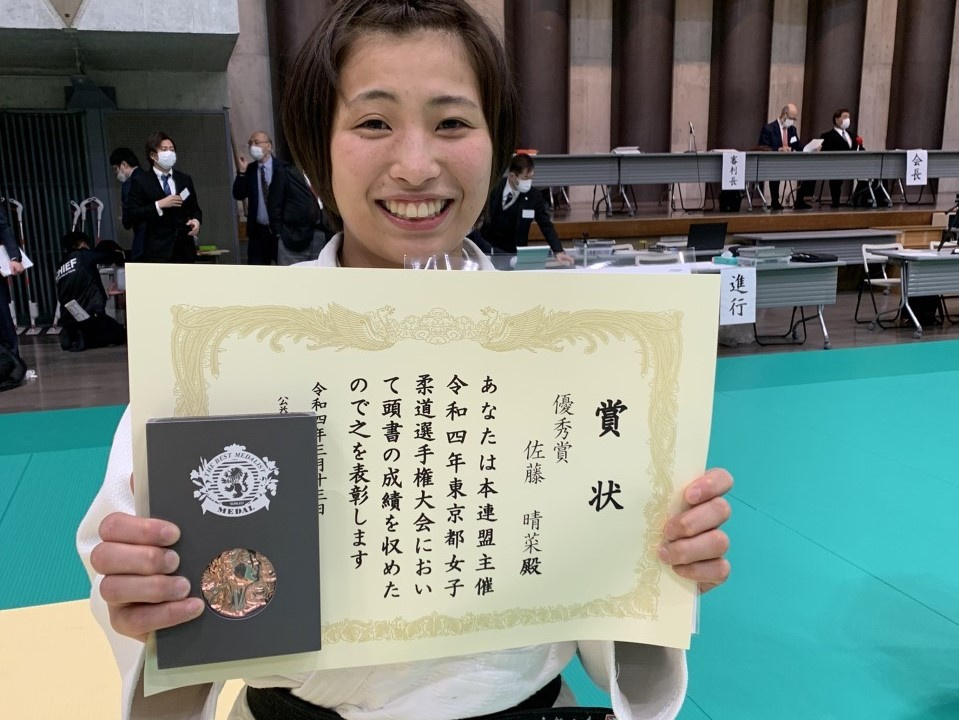 賞状
優秀賞
佐藤 晴菜殿
あなたは本連盟主催
令和四年東京都女子
柔道選手権大会におい
て頭書の成績を収めた
ので之を表彰します
令和四年三月十三日
公益
THE BEST MEDALIST
MEDAL
審判長
会長
進行
CHIEF